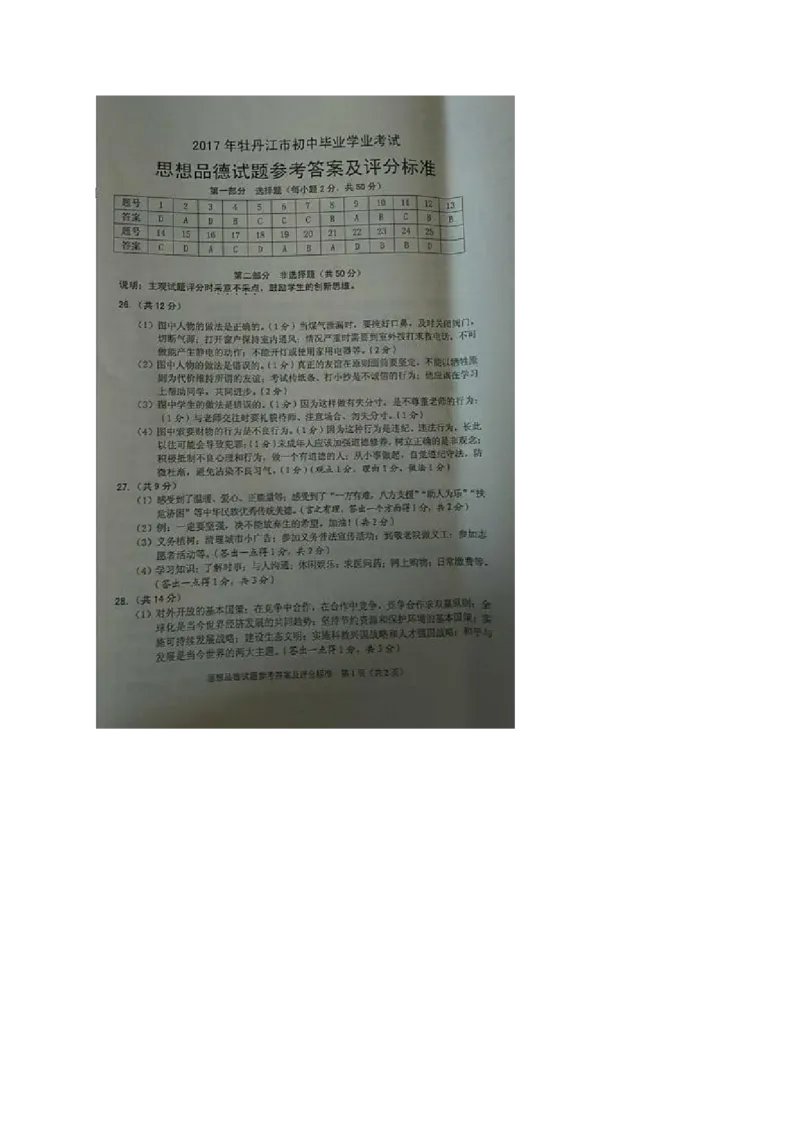 2017年牡丹江市初中毕业学业考试
思想品德试题参考答案及评分标准
第一部分 选择题（每小题2分，共50分）
题号 1 2 3 4 5 6 7 8 9 10 11 12 13
答案 D A D B C C C B A B C B B
题号 14 15 16 17 18 19 20 21 22 23 24 25
答案 C D A C D A B A D D B D
第二部分 非选择题（共50分）
说明：主观试题评分时采意不采点，鼓励学生的创新思维。
26.（共12分）
（1）图中人物的做法是正确的。（1分）当煤气泄漏时，要捂好口鼻，及时关闭阀门，
切断气源；打开窗户保持室内通风；情况严重时需要到室外拨打求救电话，不可
做能产生静电的动作；不能开灯或使用家用电器等。（2分）
（2）图中人物的做法是错误的。（1分）真正的友谊在原则面前要坚定，不能以牺牲原
则为代价维持所谓的友谊；考试传纸条、打小抄是不诚信的行为；他应该在学习
上帮助同学，共同进步。（2分）
（3）图中学生的做法是错误的。（1分）因为这样做有失分寸，是不尊重老师的行为；
（1分）与老师交往时要礼貌待师、注意场合、勿失分寸。（1分）
（4）图中索要财物的行为是不良行为。（1分）因为这种行为是违纪、违法行为，长此
以往可能会导致犯罪；（1分）未成年人应该加强道德修养，树立正确的是非观念；
积极抵制不良心理和行为，做一个有道德的人；从小事做起，自觉遵纪守法，防
微杜渐，避免沾染不良习气。（1分）（观点1分，理由1分，做法1分）
27.（共9分）
（1）感受到了温暖、爱心、正能量等；感受到了“一方有难，八方支援”“助人为乐”“扶
危济困”等中华民族优秀传统美德。（言之有理，答出一个方面得1分，共2分）
（2）例：一定要坚强，决不能放弃生的希望。加油！（共2分）
（3）义务植树；清理城市小广告；参加义务普法宣传活动；到敬老院做义工；参加志
愿者活动等。（答出一点得1分，共2分）
（4）学习知识；了解时事；与人沟通；休闲娱乐；求医问药；网上购物；日常缴费等。
（答出一点得1分，共3分）
28.（共14分）
（1）对外开放的基本国策；在竞争中合作，在合作中竞争，竞争合作求双赢原则；全
球化是当今世界经济发展的共同趋势；坚持节约资源和保护环境的基本国策；实
施可持续发展战略；建设生态文明；实施科教兴国战略和人才强国战略；和平与
发展是当今世界的两大主题。（答出一点得1分，共3分）
思想品德试题参考答案及评分标准 第1页（共2页）